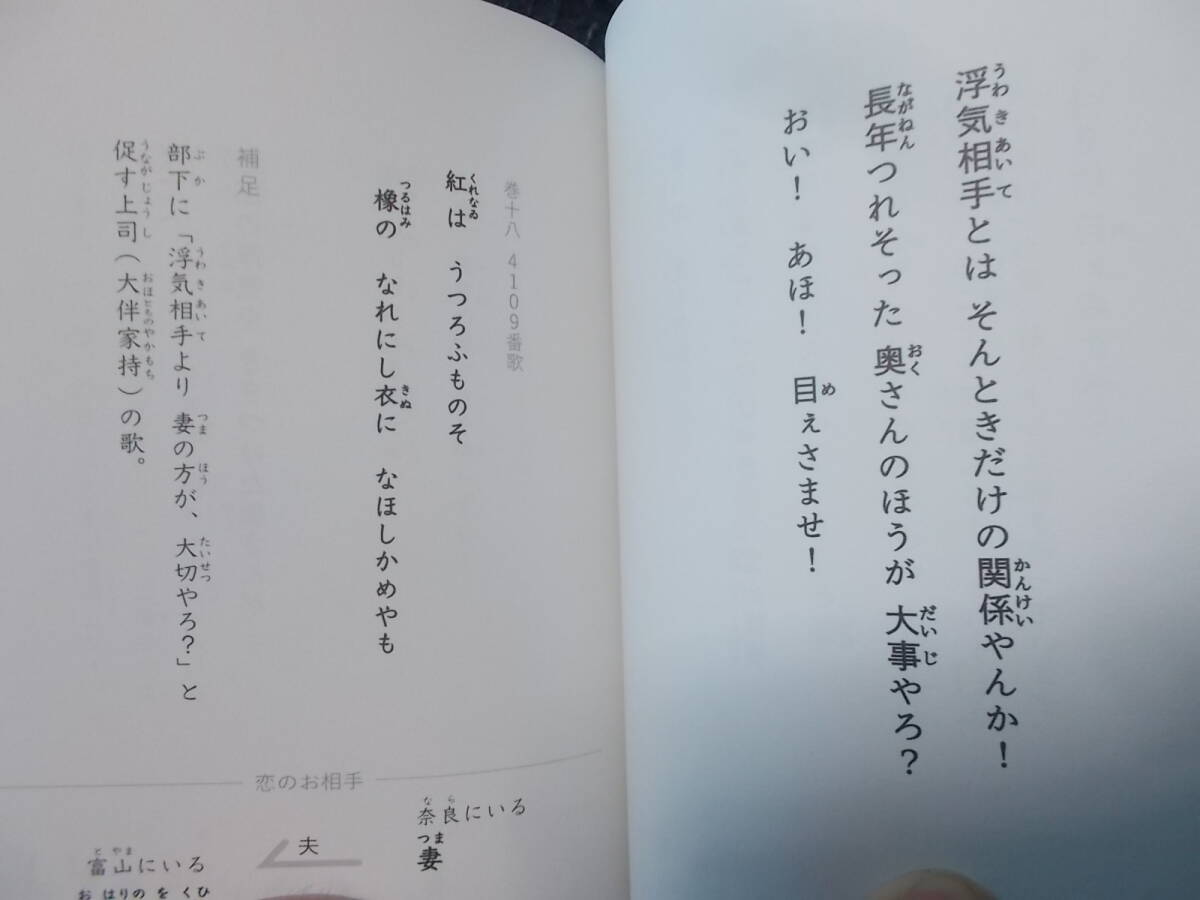 浮気相手とは そんときだけの関係やんか！
長年つれそった 奥さんのほうが 大事やろ？
おい！ あほ！ 目ぇさませ！
巻十八 4109番歌
紅は うつろふものそ
橡の なれにし衣に なほしかめやも
補足
部下に「浮気相手より 妻の方が、大切やろ？」と
促す上司（大伴家持）の歌。
恋のお相手
奈良にいる
妻
夫
富山にいる
おはりのをくひ